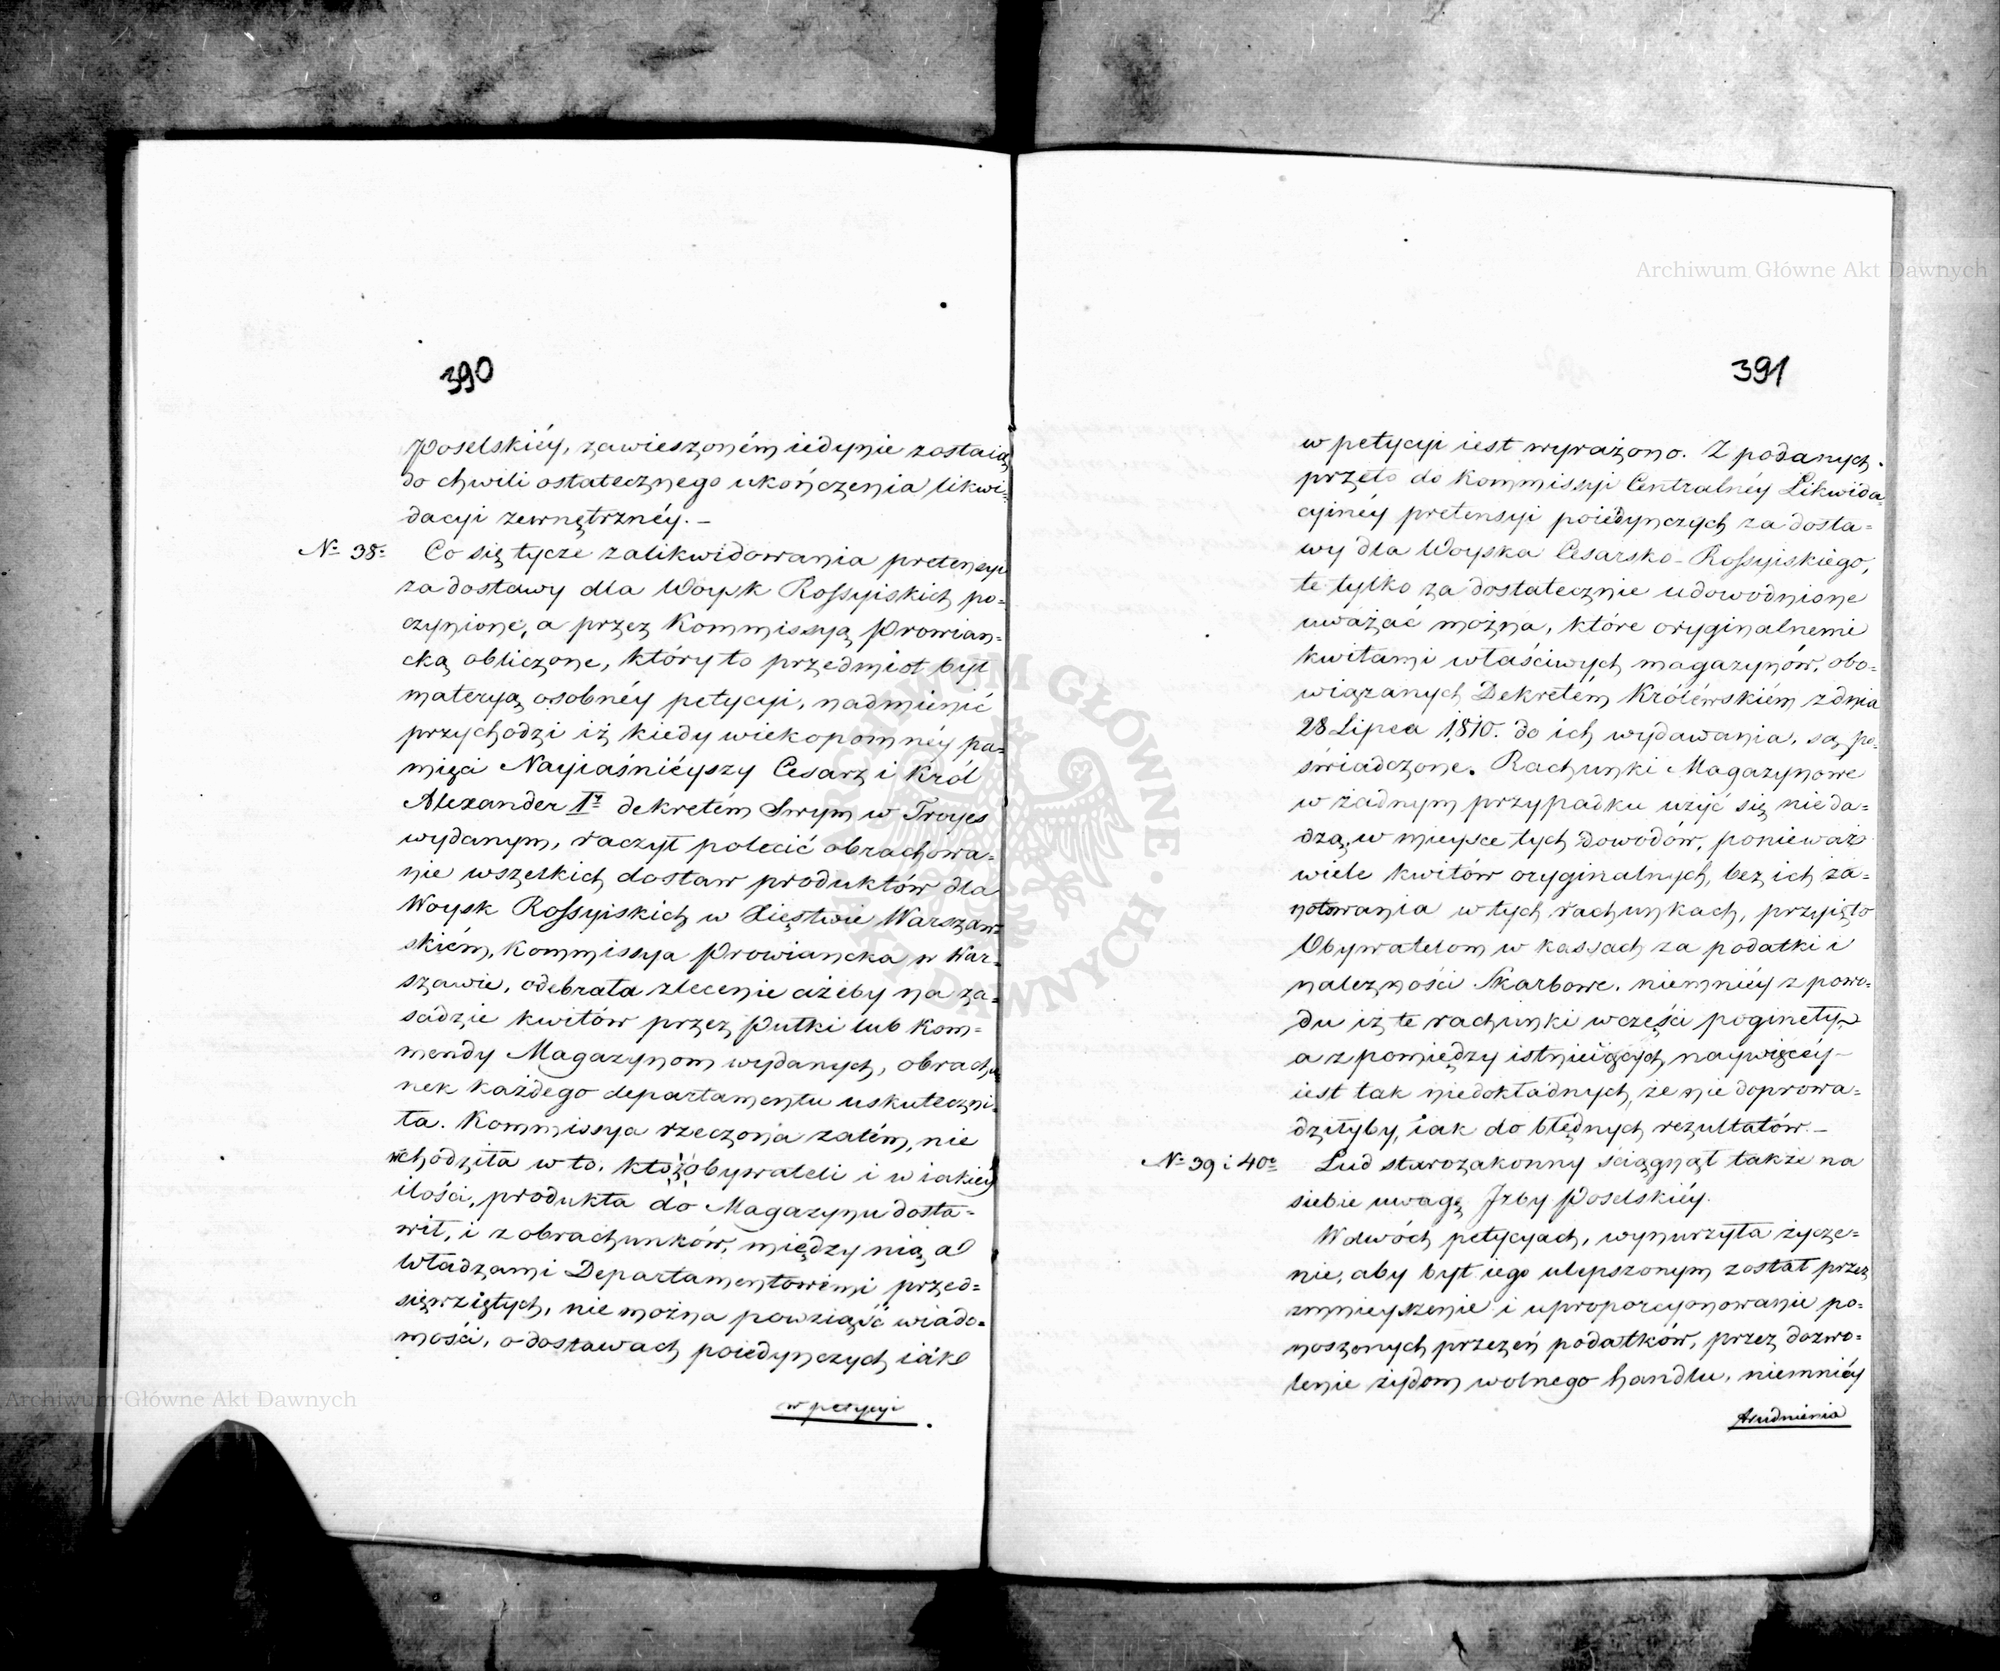 390
Poselskiéy, zawieszoném iedynie zostaią
do chwili ostatecznego ukończenia likwi=
dacyi zewnętrznéy. –
No 38o Co się tycze zalikwidowania pretensyi
za dostawy dla Woysk Rossyiskich po=
czynione, a przez Kommissyą Prowian=
cką obliczone, który to przedmiot był
materyą osobnéy petycyi, nadmienić
przychodzi iż kiedy wiekopomnéy pa=
mięci Nayiaśniéyszy Cesarz i Król
Alexander Iy dekretém Swym w Troyes
wydanym, raczył polecić obrachowa=
nie wszelkich dostaw produktów dla
Woysk Rossyiskich w Xięstwie Warszaw=
skiém, Kommissya Prowiancka w War=
szawie, odebrała zlecenie ażeby na za=
sadzie kwitów przez Pułki lub Kom=
mendy Magazynom wydanych, obrachu
nek każdego departamentu uskuteczni=
ła. Kommissya rzeczona zatém, nie
wchodziła w to, któż obywateli i w iakiéy
ilości, produkta do Magazynu dosta=
wił, i z obrachunków, między nią a
Władzami Departamentowemi przed=
sięwziętych, nie można powziąść wiado=
mości, o dostawach poiedynczych iak
w petycyi
391
w petycyi iest wyrażono. Z podanych
przeto do Kommissyi Centralnéy Likwida=
cyinéy pretensyi poiedynczych za dosta=
wy dla Woyska Cesarsko-Rossyiskiego,
te tylko za dostatecznie udowodnione
uważać można, które oryginalnemi
kwitami właściwych magazynów, obo=
wiązanych Dekretém Królewskiém z dnia
28 Lipca 1810. do ich wydawania, są po=
świadczone. Rachunki Magazynowe
w żadnym przypadku użyć się nie da=
dzą, w mieysce tych dowodów, ponieważ
wiele kwitów oryginalnych, bez ich za=
notowania w tych rachunkach, przyięto
Obywatelom w kassach za podatki i
należności Skarbowe, niemniéy z powo=
du iż te rachunki w części poginęły,
a z pomiędzy istnieiących naywięcéy
iest tak niedokładnych, że nie doprowa=
dziłyby, iak do błędnych rezultatów. –
No 39 i 40o Lud starozakonny ściągnął także na
siebie uwagę Izby Poselskiéy.
W dwóch petycyach, wynurzyła życze=
nie, aby byt iego ulepszonym został przez
zmnieyszenie i uproporcyonowanie po=
noszonych przezeń podatków, przez dozwo=
lenie żydom wolnego handlu, niemniéy
trudnienia
Archiwum Główne Akt Dawnych
Archiwum Główne Akt Dawnych
ARCHIWUM GŁÓWNE AKT DAWNYCH